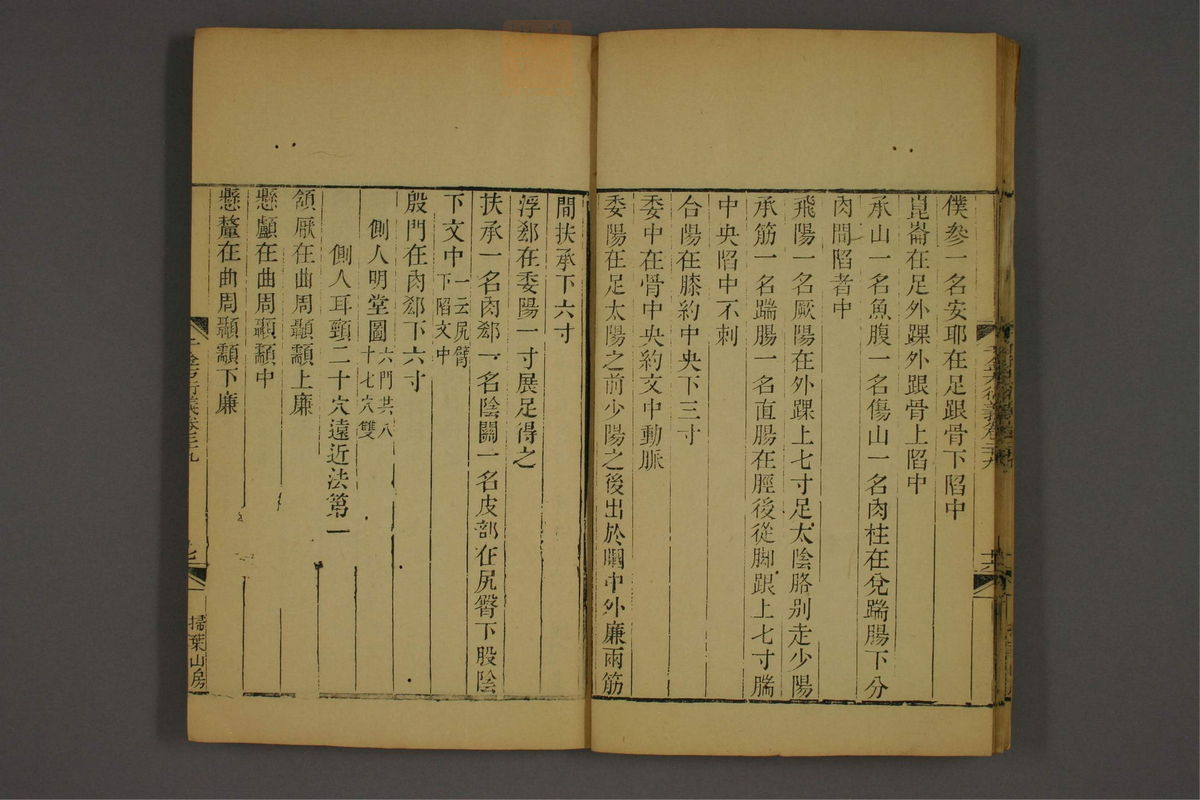 僕參一名安耶在足跟骨下陷中
崑崙在足外踝外跟骨上陷中
承山一名魚腹一名傷山一名肉柱在兌踹腸下分
肉間陷者中
飛陽一名厥陽在外踝上七寸足太陰胳别走少陽
承筋一名踹腸一名直腸在脛後從脚跟上七寸腨
中央陷中不刺
合陽在膝約中央下三寸
委中在膕中央約文中動脈
委陽在足太陽之前少陽之後出於膕中外廉兩筋
間扶承下六寸
浮郄在委陽一寸展足得之
扶承一名肉郄一名陰關一名皮部在尻臀下股陰
下文中一云尻臀下陷文中
殷門在肉郄下六寸
側人明堂圖六門共八十七穴雙
側人耳頸二十穴遠近法第一
頷厭在曲周顳顬上廉
懸顱在曲周顳顬中
懸釐在曲周顳顬下廉
掃葉山房